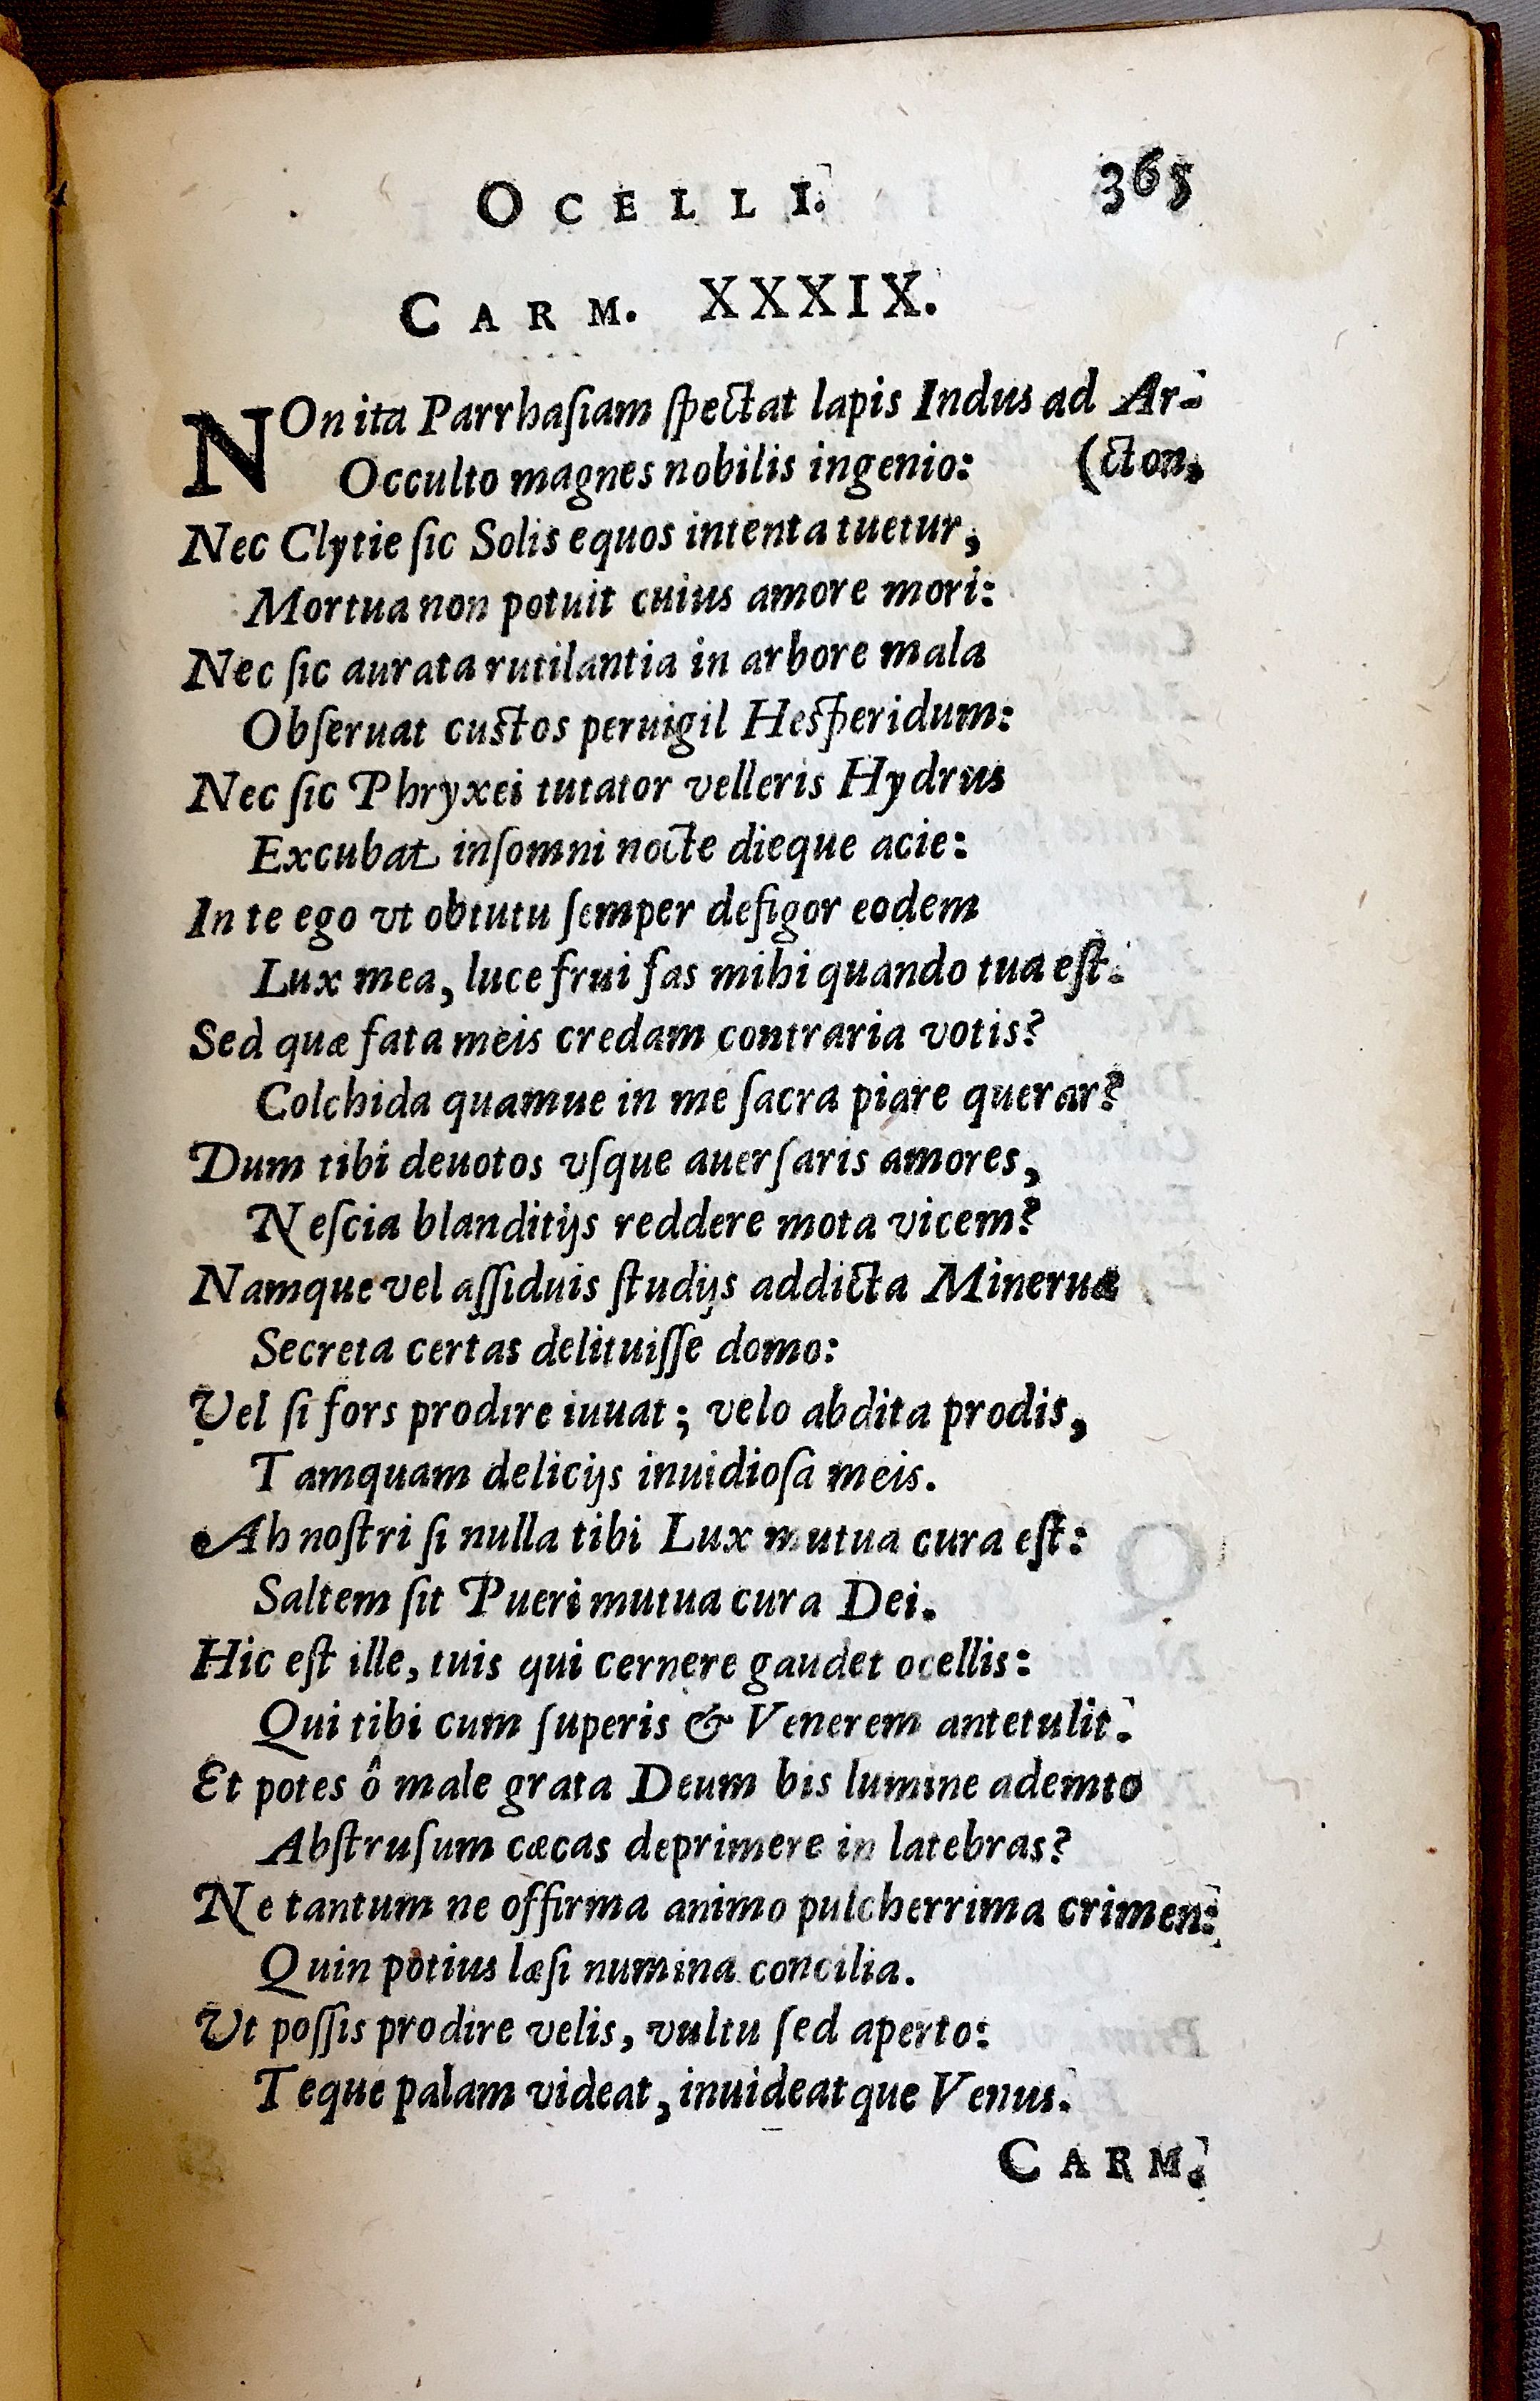 OCELLI. 365
CARM. XXXIX.
NOn ita Parrhaſiam ſpectat lapis Indus ad Ar-
Occulto magnes nobilis ingenio: (cton,
Nec Clytie ſic Solis equos intenta tuetur,
Mortua non potuit cuius amore mori:
Nec ſic aurata rutilantia in arbore mala
Obſeruat cuſtos peruigil Heſperidum:
Nec ſic Phryxei tutator velleris Hydrus
Excubat inſomni nocte dieque acie:
In te ego vt obtutu ſemper defigor eodem
Lux mea, luce frui fas mihi quando tua eſt.
Sed quæ fata meis credam contraria votis?
Colchida quamue in me ſacra piare querar?
Dum tibi deuotos vſque auerſaris amores,
Neſcia blanditijs reddere mota vicem?
Namque vel aſſiduis ſtudijs addicta Mineruæ
Secreta certas delituiſſe domo:
Vel ſi fors prodire iuuat; velo abdita prodis,
Tamquam delicijs inuidioſa meis.
Ah noſtri ſi nulla tibi Lux mutua cura eſt:
Saltem ſit Pueri mutua cura Dei.
Hic eſt ille, tuis qui cernere gaudet ocellis:
Qui tibi cum ſuperis & Venerem antetulit.
Et potes ô male grata Deum bis lumine ademto
Abſtruſum cæcas deprimere in latebras?
Ne tantum ne offirma animo pulcherrima crimen:
Quin potius læſi numina concilia.
Vt poſſis prodire velis, vultu ſed aperto:
Teque palam videat, inuideatque Venus.
CARM.